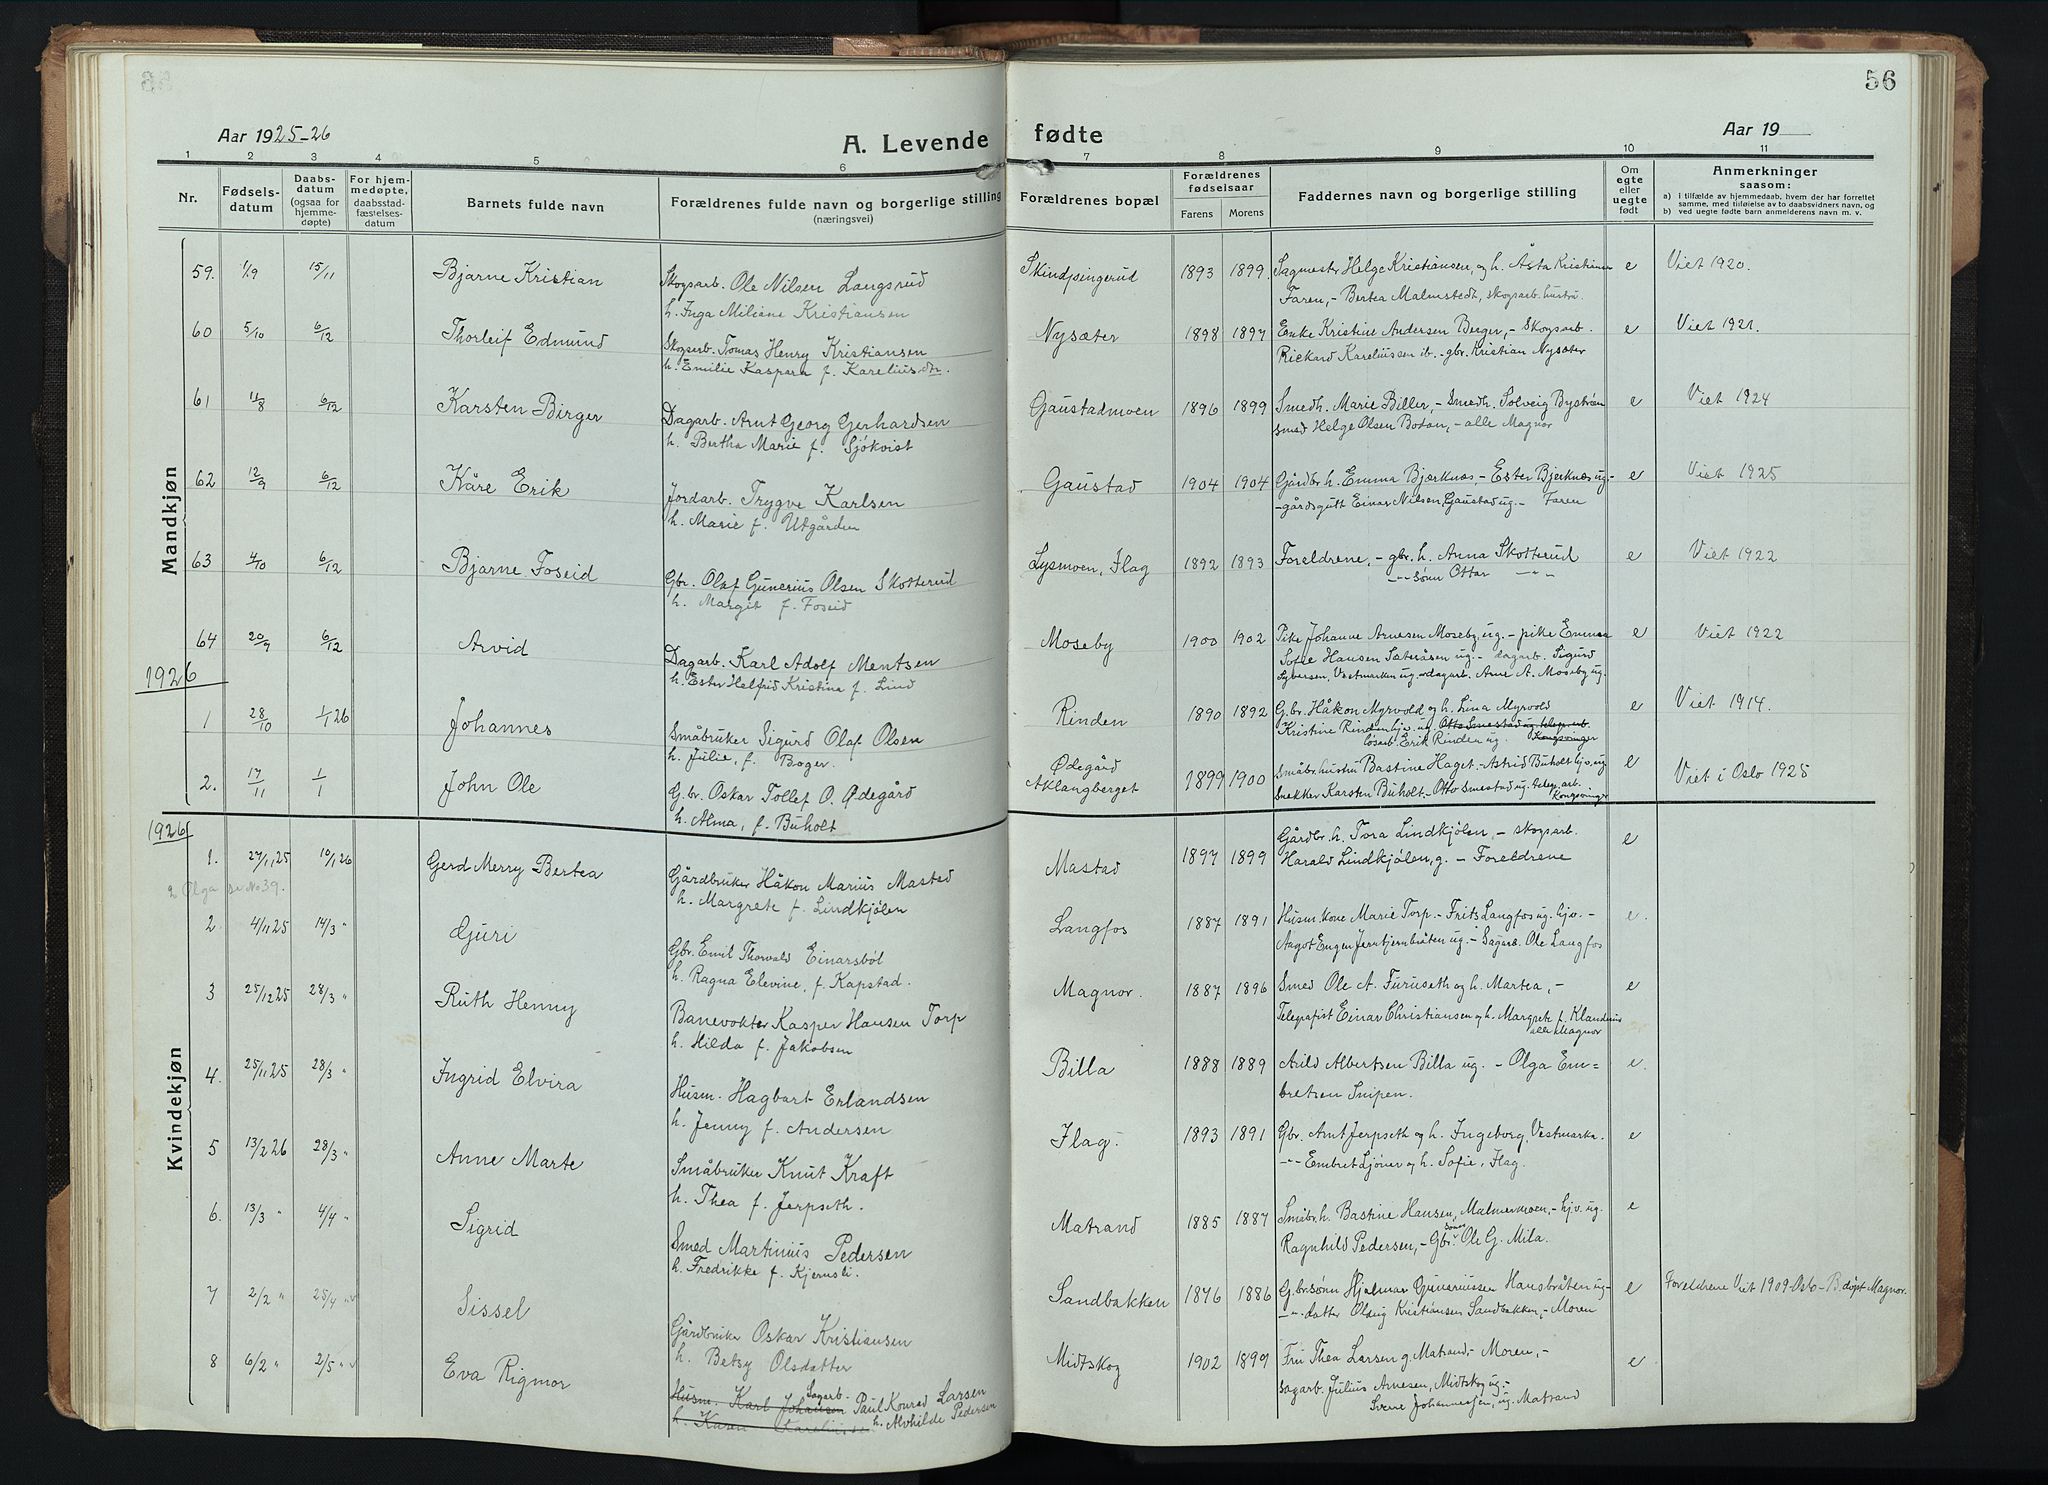 56
Aar 1925-26
A. Levende fødte
Aar 19
1 2 3 4 5 6 7 8 9 10 11
Nr.
Fødselsdatum
Daabsdatum (ogsaa for hjemmedøpte)
For hjemmedøpte, daabsstadfæstelsesdatum
Barnets fulde navn
Forældrenes fulde navn og borgerlige stilling (næringsvei)
Forældrenes bopæl
Forældrenes fødselsaar
Farens Morens
Faddernes navn og borgerlige stilling
Om egte eller uegte født
Anmerkninger saasom:
a) I tilfælde av hjemmedaab, hvem der har forrettet samme, med tilføielse av to daabsvidners navn, og
b) ved uegte fødte barn anmelderens navn m. v.
Mandkjøn
59. 1/9 15/11 Bjarne Kristian
Skogsarb. Ole Nilsen Langsrud
h. Inga Miliane Kristiansen
Skindpingerud 1893 1899.
Sagmester Helge Kristiansen, og h. Åsta Kristiansen
Faren, - Bertea Malmstedt, skogsarb. hustru.
e Viet 1920.
60 5/10 6/12 Thorleif Edmund
Skogsarb. Tomas Henry Kristiansen
h. Emilie Kaspara f. Kareliusdtr.
Nysæter 1898 1897
Enke Kristine Andersen Berger, - Skogsarb.
Rickard Kareliussen ib. - gbr. Kristian Nysæter
e Viet 1921.
61 11/8 6/12 Karsten Birger
Dagarb. Arnt Georg Gerhardsen
h. Bertha Marie f. Sjökvist
Gaustadmoen 1896 1899
Smedh. Marie Biller, - Smedh. Solveig Byström
smed Helge Olsen Botan, - alle Magnor
e Viet 1924
62 12/9 6/12 Kåre Erik
Jordarb. Trygve Karlsen
h. Marie f. Utgården
Gaustad 1904 1904
Gårdbr. h. Emma Bjerknæs - Ester Bjerknæs ug. -
- gårdsgutt Einar Nilsen, Gaustad ug. - Faren
e Viet 1925
63 4/10 6/12 Bjarne Foseid
Gbr. Olaf Gunerius Olsen Skotterud
h. Margit f. Foseid
Lysmoen, Flag 1892 1893
Foreldrene, - gbr. h. Anna Skotterud
-"- sønn Ottar -"-
e Viet 1922
64 20/9 6/12 Arvid
Dagarb. Karl Adolf Mentsen
h. Ester Helfrid Kristina f. Lind
Moseby 1900 1902
Pike Johanne Arnesen Moseby, ug. - pike Emma
Sofie Hansen Sæteråsen ug. - dagarb. Sigurd
Syversen, Vestmarken ug. - dagarb. Arne A. Moseby ug.
e Viet 1922
1926
1 28/10 1/1 26 Johannes
Småbruker Sigurd Olaf Olsen
h. Julie, f. Boger.
Rinden 1890 1892
G.br. Håkon Myrvold og h. Lina Myrvold
Kristine Rinden hjv. ug. Otto Smestad ug. telegr. arb. Kongsvinger
løsarb. Erik Rinden ug.
e Viet 1914.
2. 17/11 1/1 John Ole
G.br. Oskar Tollef O. Ødegård
h. Alma, f. Buholt
Ødegård
Aklangberget 1899 1900
Småbr. hustru Bastine Haget. - Astrid Buholt hjv. ug
Snekker Karsten Buholt. - Otto Smestad ug. telegr. arb.
Kongsvinger
e Viet i Oslo 1925
1926
Kvindekjøn
1. 27/11 25 10/1 26 Gerd Merry Bertea
Gårdbruker Håkon Marius Mastad
h. Margrete f. Lindkjølen
Mastad 1897 1899
Gårdbr. h. Tora Lindkjølen, - skogsarb.
Harald Lindkjølen, g. - Foreldrene
e
2 Olga se No 39.
2. 4/11 25 14/3 " Guri
Gbr. Emil Thorvald Einarsböl
h. Ragna Elevine, f. Kapstad.
Langfos 1887 1891
Husm. kone Marie Torp. - Frits Langfos ug. hjv. -
Aagot Engen Jerntjernbråten ug. - Sagarb. Ole Langfos
e.
3 25/12 25 28/3 " Ruth Henny
Banevokter Kasper Hansen Torp
h. Hilda f. Jakobsen
Magnor. 1887 1896
Smed Ole A. Furuseth og h. Martea, -
Telegrafist Einar Christiansen og h. Margrete f. Klandrius
alle Magnor
e
4. 25/11 25 28/3 " Ingrid Elvira
Husm. Hagbart Erlandsen
h. Jenny f. Andersen
Billa 1888 1889
Arild Albertsen Billa ug. - Olga Em=
bretsen Snipen.
e.
5 13/2 26 28/3 " Anne Marte
Småbruker Knut Kraft
h. Thea f. Jerpseth.
Flag - 1893 1891
Gbr. Arnt Jerpseth og h. Ingeborg, Vestmarka.
-"- Embret Ljöner og h. Sofie, Flag.
e
6. 13/3 " 4/4 " Sigrid
Smed Martinius Pedersen
h. Fredrikke f. Kjernsli.
Matrand 1885 1887
Småbr. h. Bastine Hansen, Malmerkmoen, - hj. v. ug.
Ragnhild Pedersen, - Gbr. sønn Ole G. Mila.
e
7 2/2 " 25/4 " Sissel
Gårdbruker Oskar Kristiansen
h. Betsy Olsdatter
Sandbakken 1876 1886
G.br. sønn Hjalmar Gunariussen Hansbråten ug -
-"- datter Oldug Kristiansen Sandbakken, - Moren
e Foreldrene Viet 1909. Oslo - B. døpt Magnor.
8 6/2 " 2/5 " Eva Rigmor
Husm. Karl Johansen Sagarb. Paul Konrad Larsen
h. Karen Kareliusse h. Alvhilde Pedersen
Midtskog 1902 1899
Fru Thea Larsen g. Matrand, - Moren, -
sagarb. Julius Arnesen, Midtskog ug. -
Sverre Johannessen, ug. Matrand
e